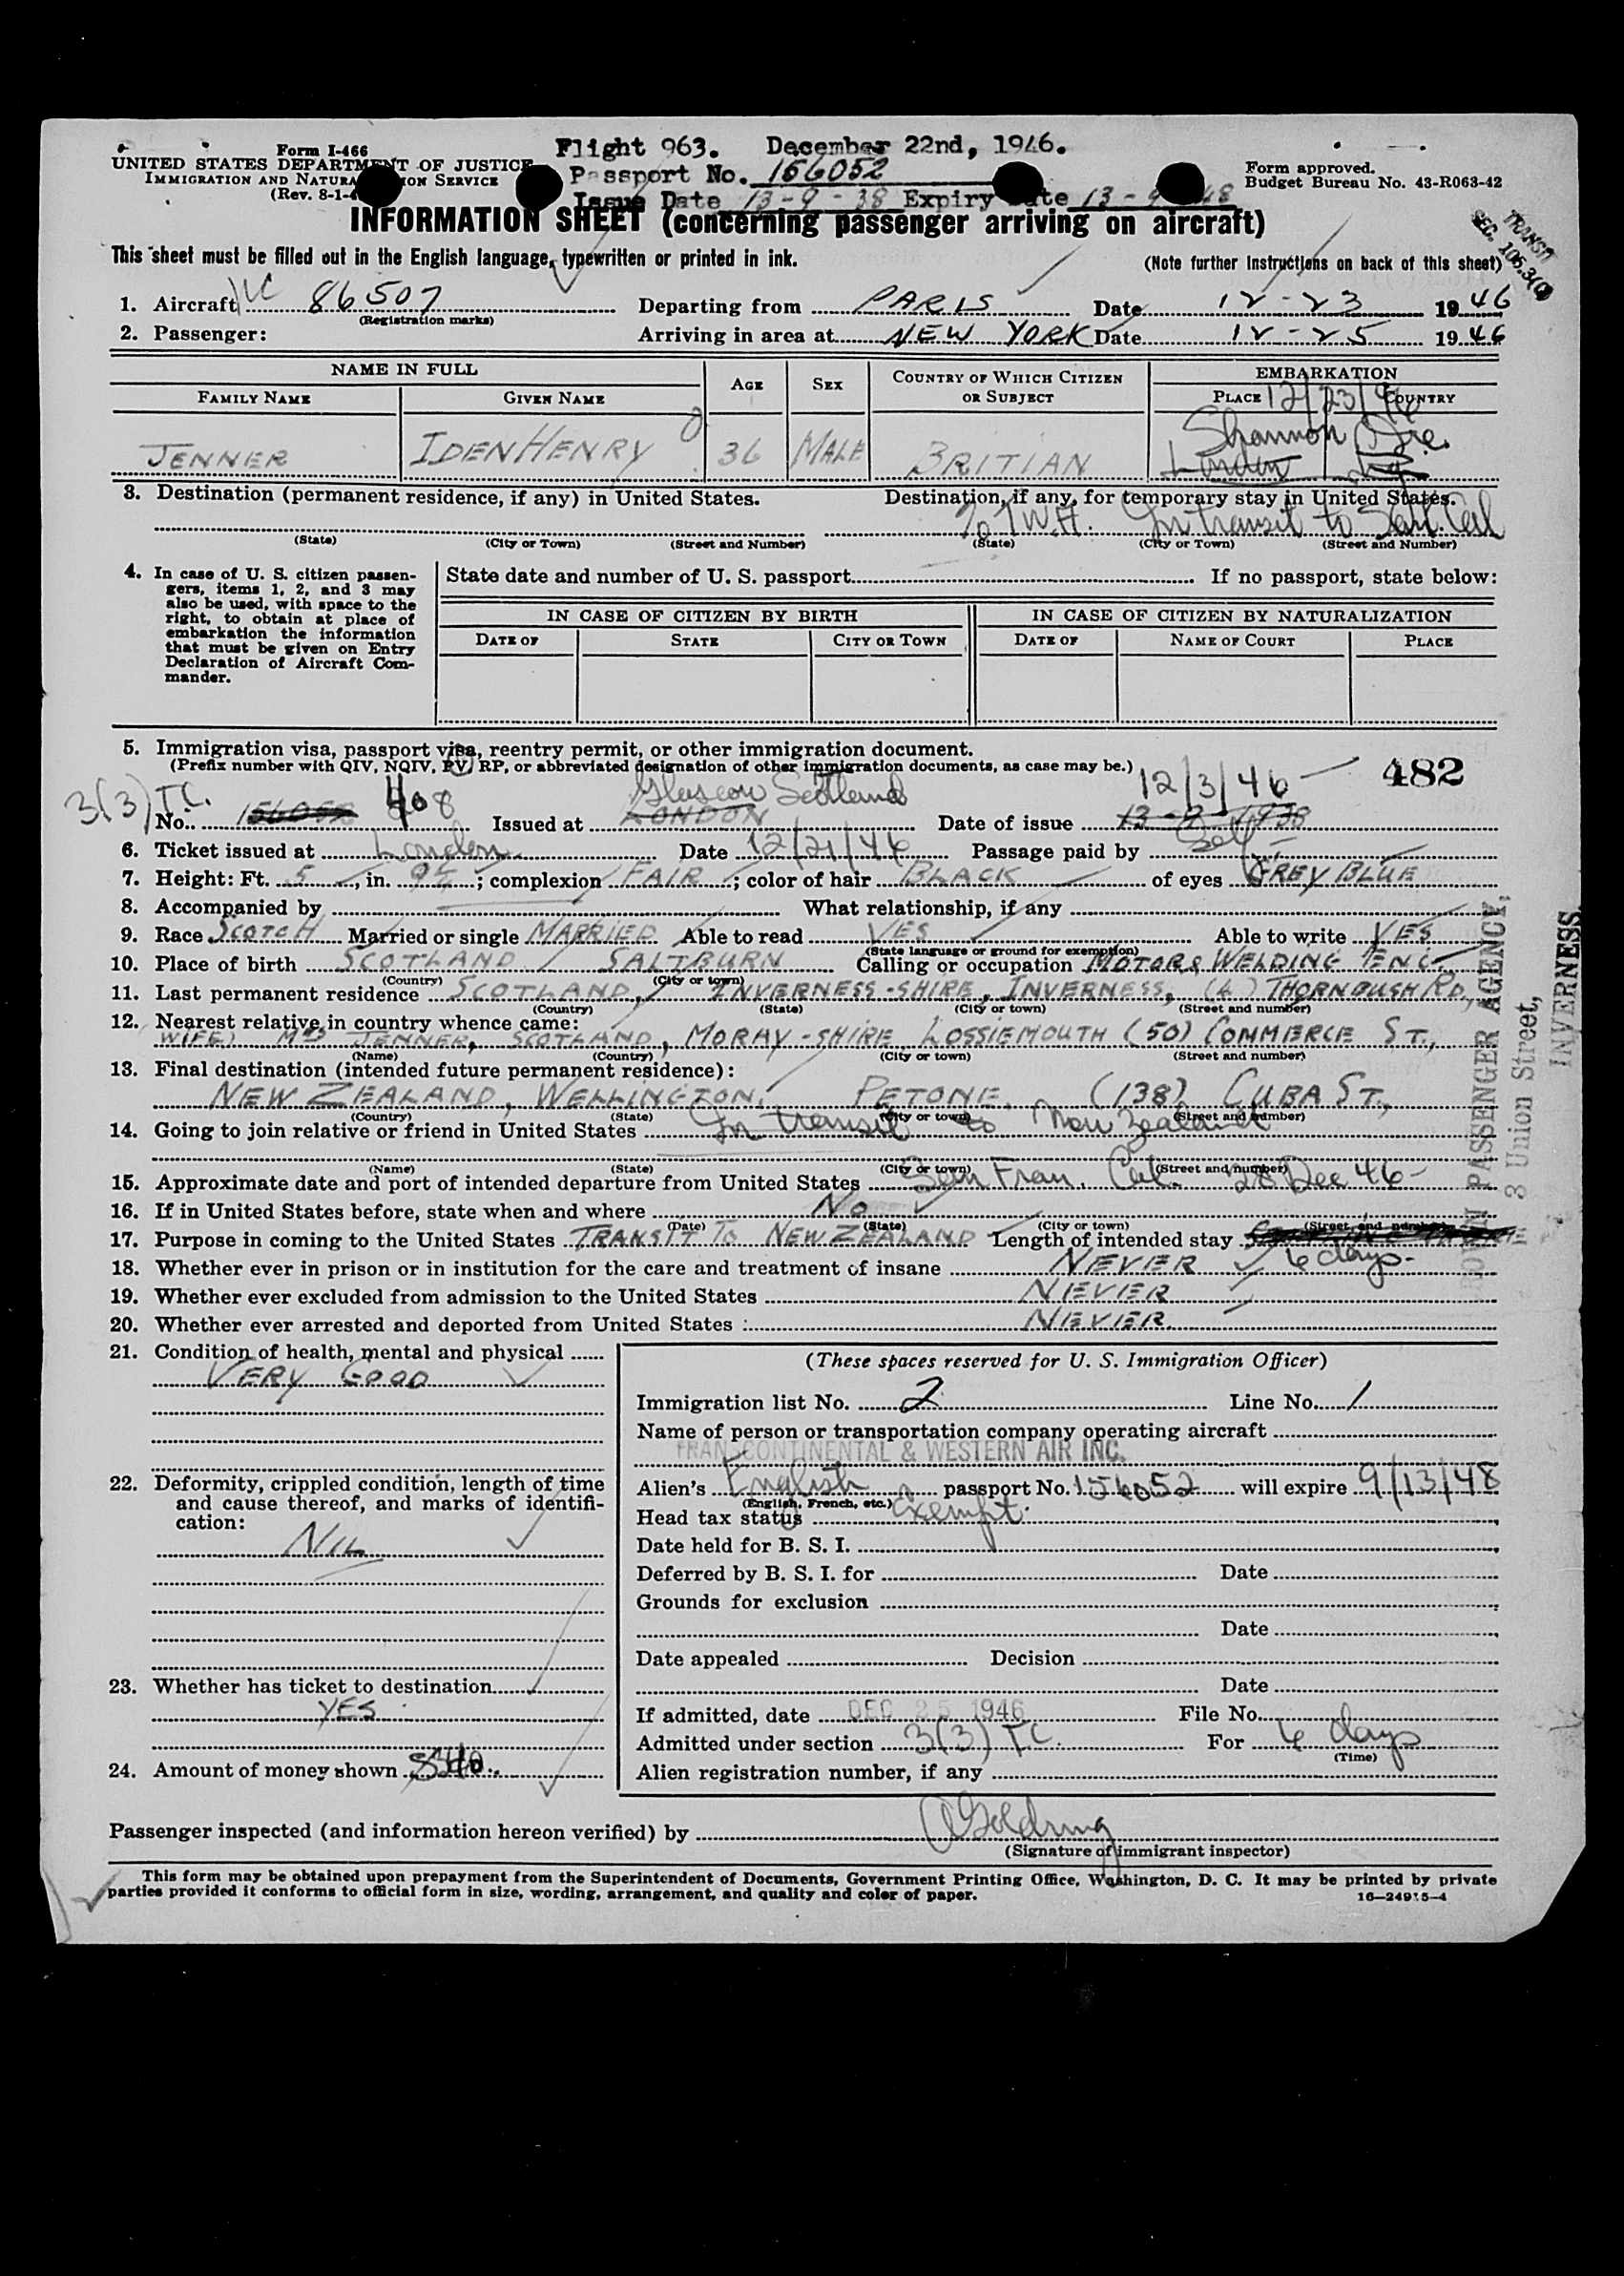 Form I-466
UNITED STATES DEPARTMENT OF JUSTICE
IMMIGRATION AND NATURA ION SERVICE
(Rev. 8-1-4
Flight 963. December 22nd, 1946.
Passport No. 156052
Issue Date 13-9-38 Expiry te 13-9 48
Form approved.
Budget Bureau No. 43-R063-42
INFORMATION SHEET (concerning passenger arriving on aircraft)
TRANSIT
SEC. 105.3(
This sheet must be filled out in the English language, typewritten or printed in ink.
(Note further instructions on back of this sheet)
1. Aircraft NC 86507 Departing from PARIS Date 12-23 1946
(Registration marks)
2. Passenger: Arriving in area at NEW YORK Date 12-25 1946
NAME IN FULL
AGE SEX COUNTRY OF WHICH CITIZEN OR SUBJECT EMBARKATION
FAMILY NAME GIVEN NAME PLACE COUNTRY
12/23/46
Shannon Ire.
JENNER IDEN HENRY 36 MALE BRITIAN London
3. Destination (permanent residence, if any) in United States. Destination, if any, for temporary stay in United States.
% T.W.A. In transit to San. Cal
(State) (City or Town) (Street and Number) (State) (City or Town) (Street and Number)
4. In case of U. S. citizen passen-
gers, items 1, 2, and 3 may
also be used, with space to the
right, to obtain at place of
embarkation the information
that must be given on Entry
Declaration of Aircraft Com-
mander.
State date and number of U. S. passport If no passport, state below:
IN CASE OF CITIZEN BY BIRTH IN CASE OF CITIZEN BY NATURALIZATION
DATE OF STATE CITY OR TOWN DATE OF NAME OF COURT PLACE
5. Immigration visa, passport visa, reentry permit, or other immigration document.
(Prefix number with QIV, NQIV, PV, RP, or abbreviated designation of other immigration documents, as case may be.)
482
3(3) T.C. 408 Glascow Scotland 12/3/46
No. 156052 Issued at LONDON Date of issue 13-9-1938
6. Ticket issued at London Date 12/21/46 Passage paid by Self
7. Height: Ft. 5, in. 9½; complexion FAIR; color of hair BLACK of eyes GREY BLUE
8. Accompanied by What relationship, if any
9. Race SCOTCH Married or single MARRIED Able to read YES Able to write YES
(State language or ground for exemption)
10. Place of birth SCOTLAND SALTBURN Calling or occupation MOTOR & WELDING ENG.
(Country) (City or town)
11. Last permanent residence SCOTLAND, INVERNESS-SHIRE, INVERNESS, (4) THORNBUSH RD,
(Country) (State) (City or town) (Street and number)
12. Nearest relative in country whence came:
WIFE) MRS JENNER, SCOTLAND, MORAY-SHIRE LOSSIEMOUTH (50) COMMERCE ST.,
(Name) (Country) (City or town) (Street and number)
13. Final destination (intended future permanent residence):
NEW ZEALAND, WELLINGTON, PETONE, (138) CUBA ST.,
(Country) (State) (City or town) (Street and number)
14. Going to join relative or friend in United States In transit to New Zealand
(Name) (State) (City or town) (Street and number)
15. Approximate date and port of intended departure from United States San Fran. Cal. 28 Dec 46
16. If in United States before, state when and where No
(Date) (State) (City or town) (Street and number)
17. Purpose in coming to the United States TRANSIT TO NEW ZEALAND Length of intended stay
6 days
18. Whether ever in prison or in institution for the care and treatment of insane NEVER
19. Whether ever excluded from admission to the United States NEVER
20. Whether ever arrested and deported from United States : NEVER
PASSENGER AGENCY,
3 Union Street,
INVERNESS.
21. Condition of health, mental and physical
VERY GOOD
22. Deformity, crippled condition, length of time
and cause thereof, and marks of identifi-
cation:
NIL
23. Whether has ticket to destination
YES
24. Amount of money shown
(These spaces reserved for U. S. Immigration Officer)
Immigration list No. 2 Line No. 1
Name of person or transportation company operating aircraft
TRANSCONTINENTAL & WESTERN AIR INC.
Alien's English passport No. 156052 will expire 9/13/48
(English, French, etc.)
Head tax status Exempt.
Date held for B. S. I.
Deferred by B. S. I. for Date
Grounds for exclusion
Date
Date appealed Decision
Date
If admitted, date DEC 25 1946 File No.
Admitted under section 3(3) T.C. For 6 days
(Time)
Alien registration number, if any
Passenger inspected (and information hereon verified) by Goldring
(Signature of immigrant inspector)
This form may be obtained upon prepayment from the Superintendent of Documents, Government Printing Office, Washington, D. C. It may be printed by private
parties provided it conforms to official form in size, wording, arrangement, and quality and color of paper.
16—24915-4